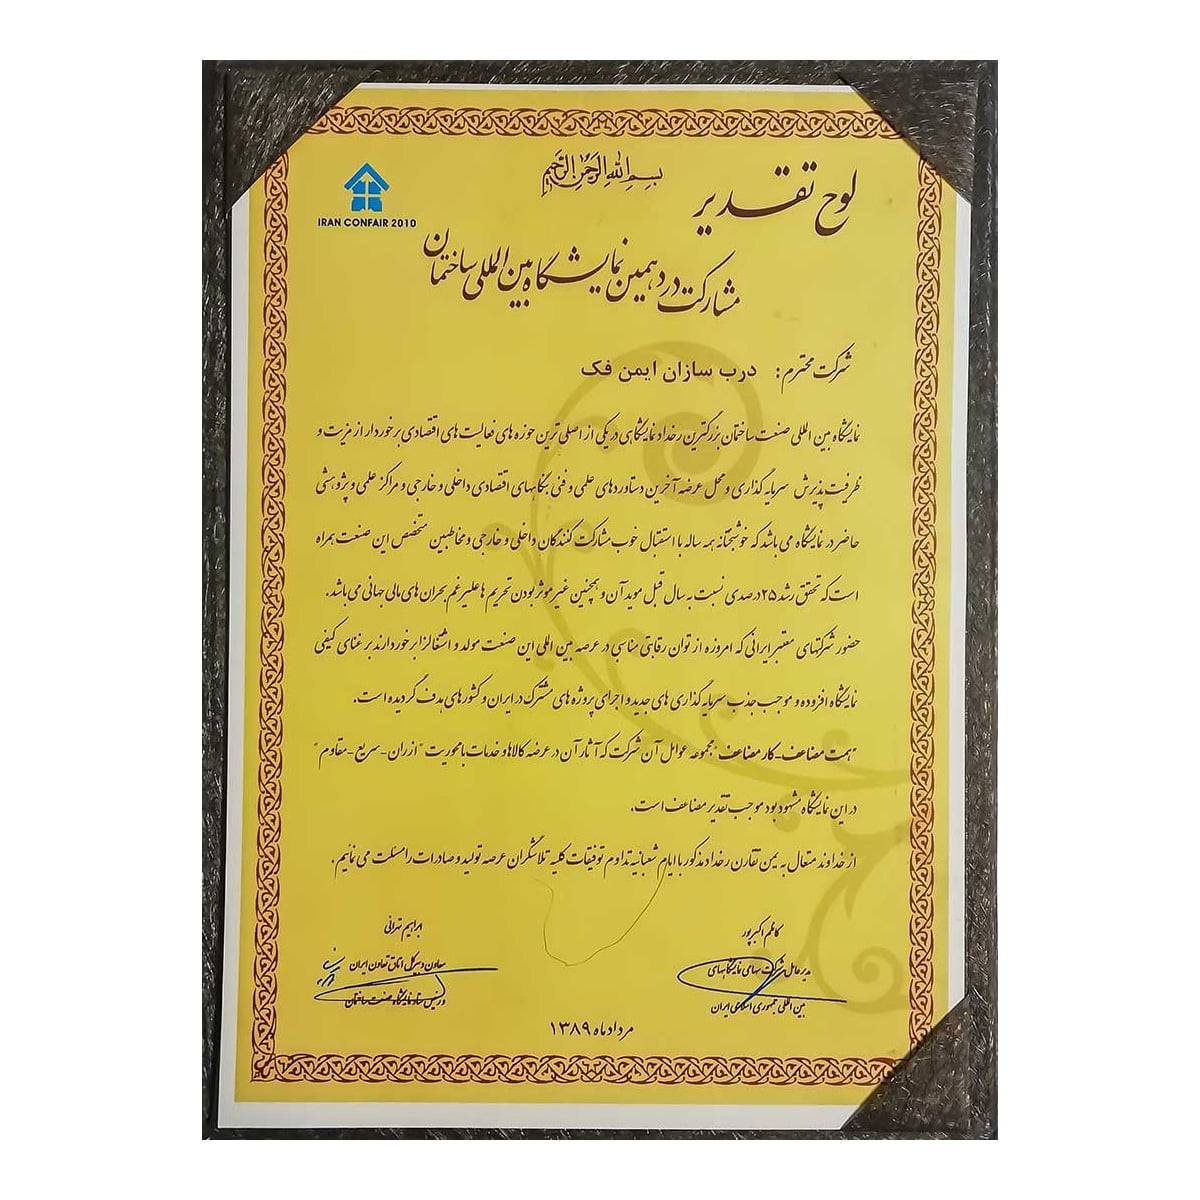 بسم الله الرحمن الرحیم
IRAN CONFAIR 2010
لوح تقدیر
مشارکت در دهمین نمایشگاه بین المللی ساختمان
شرکت محترم: درب سازان ایمن فک
نمایشگاه بین المللی صنعت ساختمان بزرگترین رخداد نمایشگاهی در یکی از اصلی ترین حوزه های فعالیت های اقتصادی برخوردار از مزیت و
ظرفیت پذیرش سرمایه گذاری و محل عرضه آخرین دستاوردهای علمی و فنی بنگاههای اقتصادی داخلی و خارجی و مراکز علمی و پژوهشی
حاضر در نمایشگاه می باشد که خوشبختانه همه ساله با استقبال خوب مشارکت کنندگان داخلی و خارجی و مخاطبین متخصص این صنعت همراه
است که تحقق رشد ۲۵ درصدی نسبت به سال قبل موید آن و همچنین غیر موثر بودن تحریم ها علیرغم بحران های مالی جهانی می باشد.
حضور شرکتهای معتبر ایرانی که امروزه از توان رقابتی مناسبی در عرصه بین المللی این صنعت مولد و اشتغالزا برخوردارند بر غنای کیفی
نمایشگاه افزوده و موجب جذب سرمایه گذاری های جدید و اجرای پروژه های مشترک در ایران و کشورهای هدف گردیده است.
"همت مضاعف-کار مضاعف" مجموعه عوامل آن شرکت که آثار آن در عرضه کالاها و خدمات با محوریت "ارزان-سریع-مقاوم"
در این نمایشگاه مشهود بود موجب تقدیر مضاعف است.
از خداوند متعال به یمن تقارن رخداد مذکور با ایام شعبانیه تداوم توفیقات کلیه تلاشگران عرصه تولید و صادرات را مسئلت می نمایم.
کاظم اکبرپور
مدیر عامل شرکت سهامی نمایشگاههای
بین المللی جمهوری اسلامی ایران
ابراهیم تهرانی
معاون دبیرکل اتاق تعاون ایران
و رئیس ستاد نمایشگاه صنعت ساختمان
مرداد ماه ۱۳۸۹